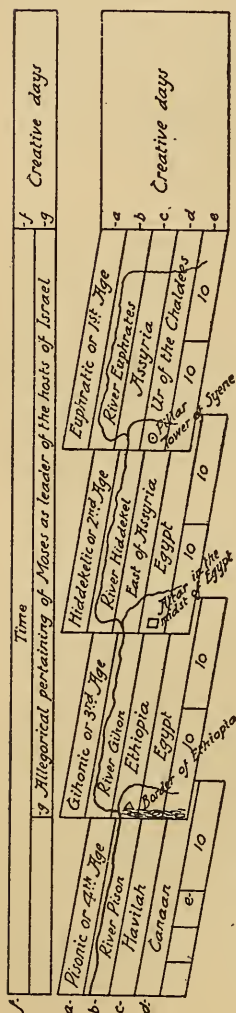 Time
f-
-f
-g Allegorical pertaining of Moses as leader of the hosts of Israel
-g
Creative days
a- Pisonic or 4th Age
b- River Pison
c- Havilah
d- Canaan
e-
10
Gihonic or 3rd Age
River Gihon
Ethiopia
Egypt
10
10
Border of Ethiopia
Hiddekelic or 2nd Age
River Hiddekel
East of Assyria
Egypt
10
10
Altar in the
midst of Egypt
Euphratic or 1st Age
River Euphrates
Assyria
Ur of the Chaldees
10
10
Pillar
Tower of Syene
-a
-b
-c
-d
-e
Creative days